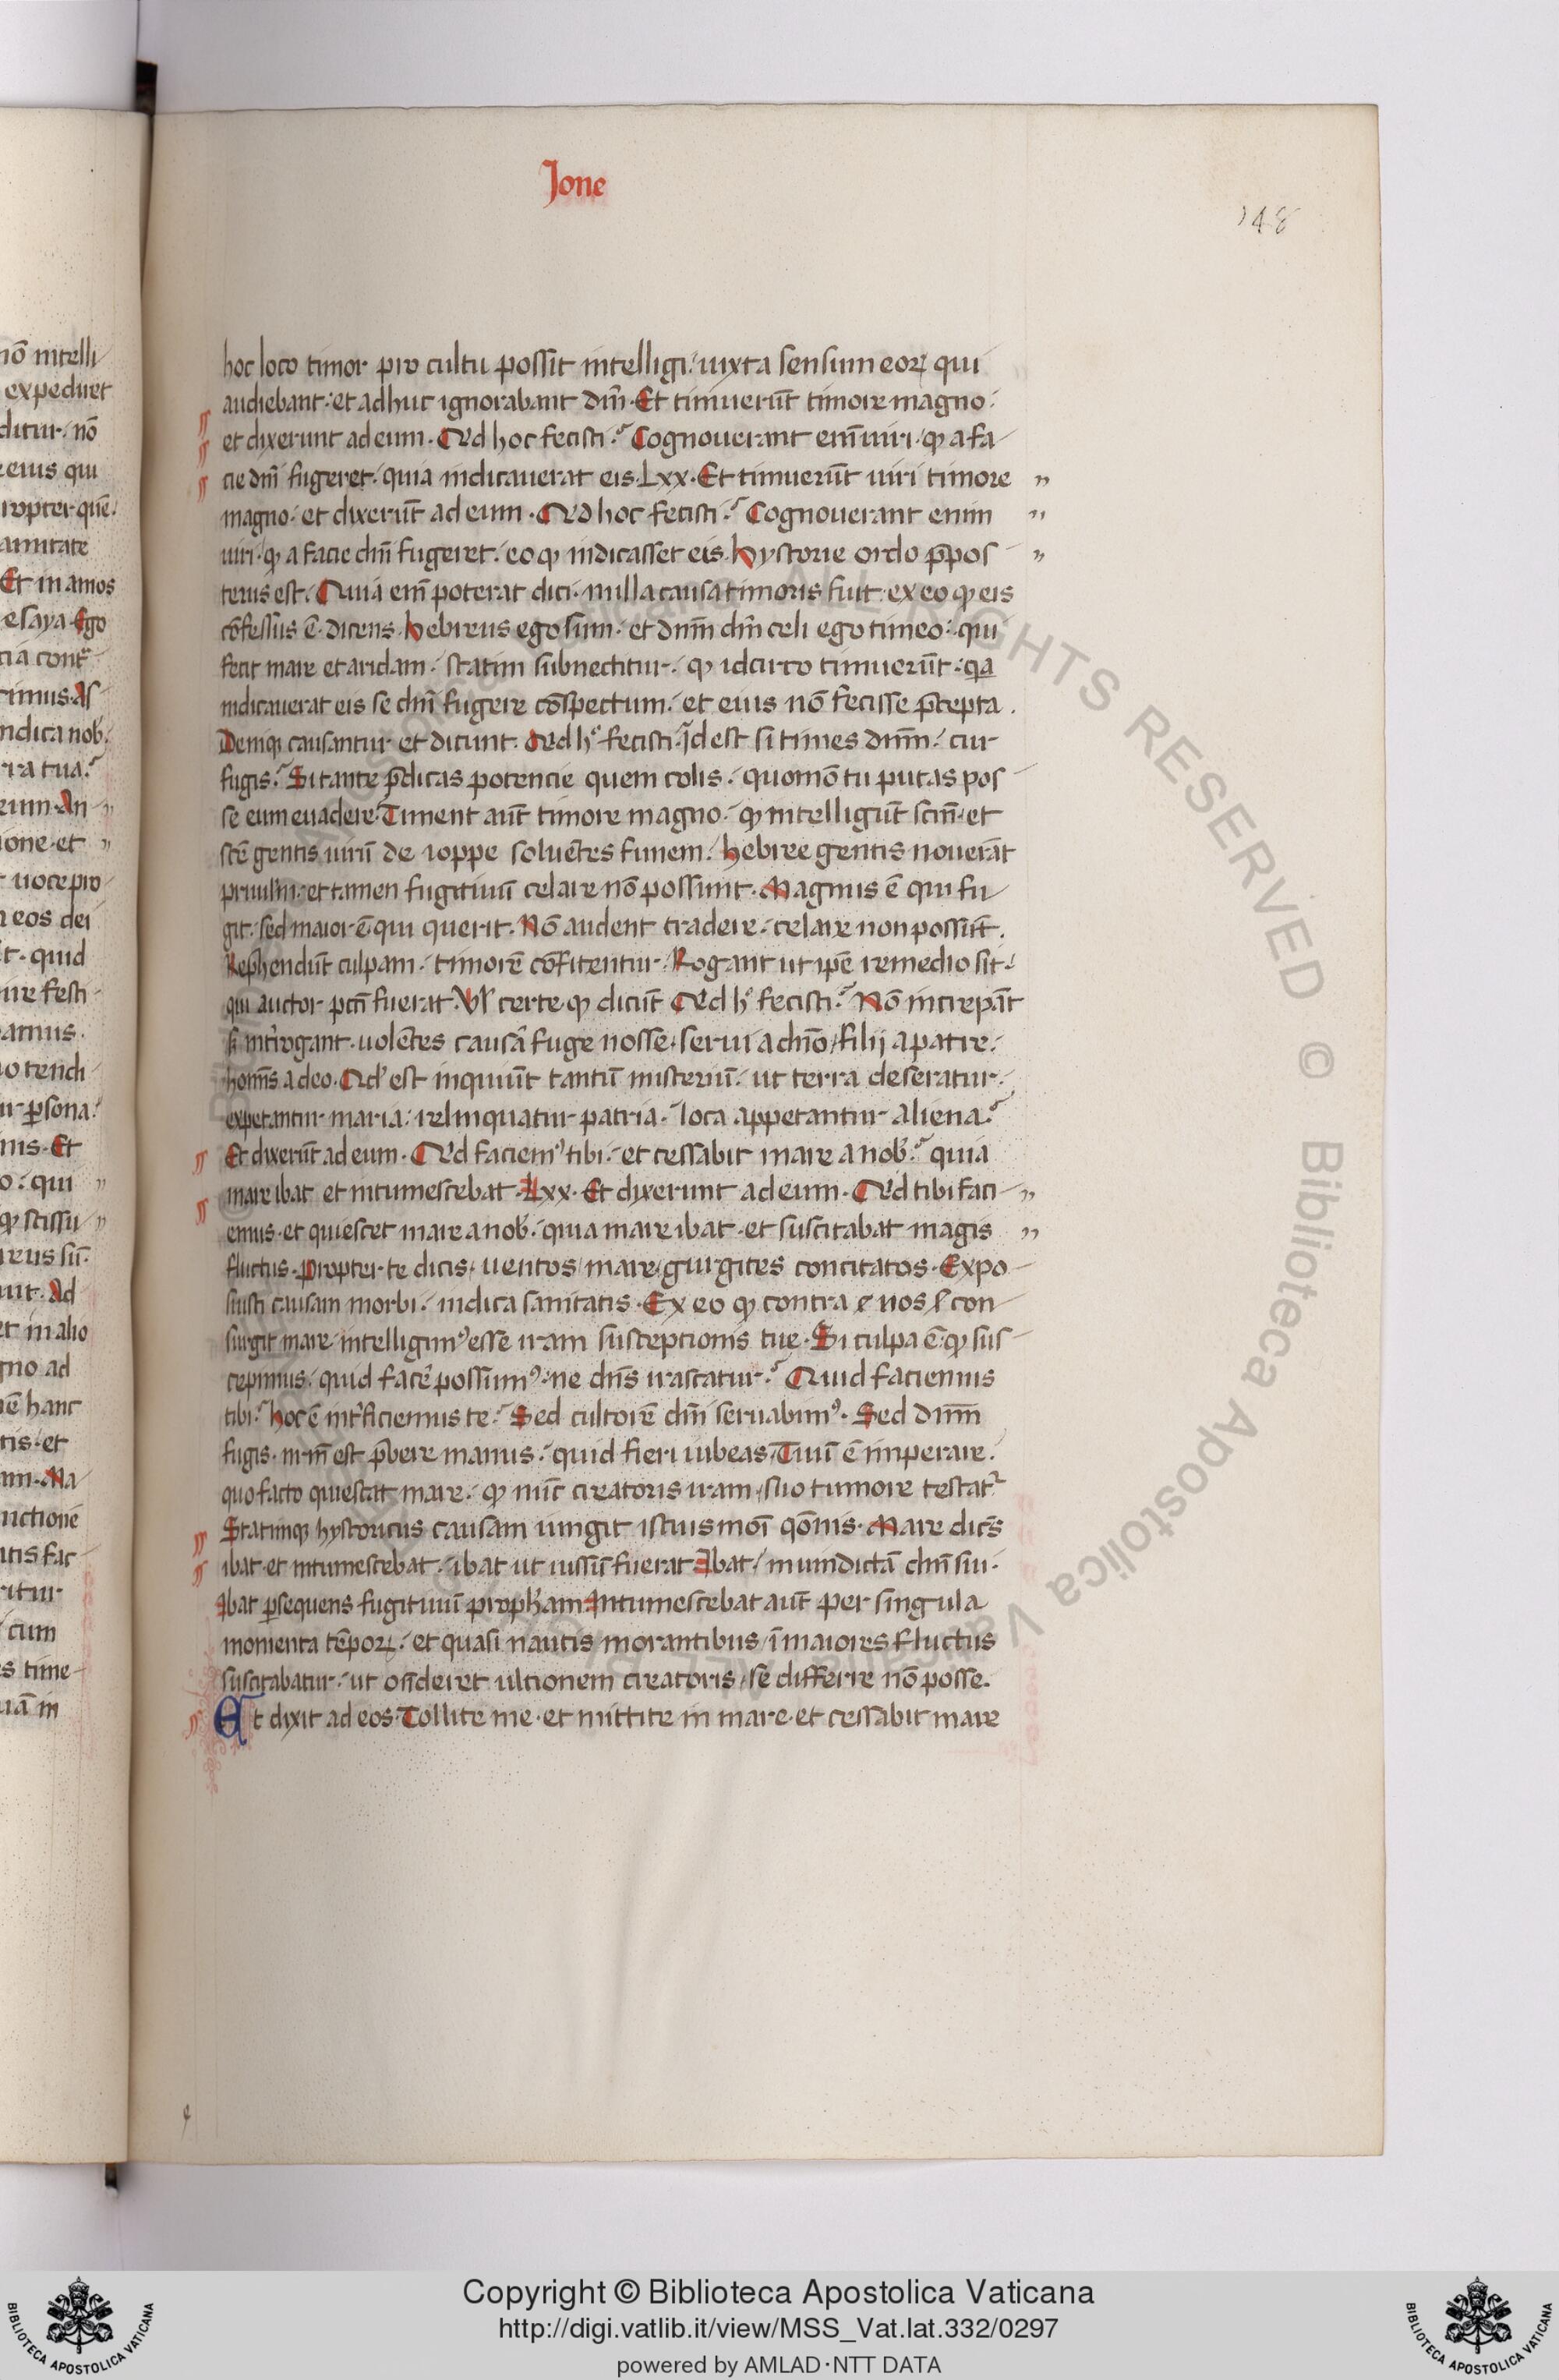 Ione
148
hoc loco timor pro cultu possit intelligi. iuxta sensum eoꝝ qui
audiebant. et adhuc ignorabant dm̄. Et timuerūt timore magno.
et dixerunt ad eum. Qͥd hoc fecisti? Cognouerant eni᷒ uiri. ꝙ a fa-
cie dn̄i fugeret. quia indicauerat eis. Lxx. Et timuerūt uiri timore "
magno. et dixerūt ad eum. Qͥd hoc fecisti? Cognouerant enim "
uiri. ꝙ a facie dn̄i fugeret. eo ꝙ indicasset eis. Hystorie ordo p̄pos- "
terus est. Quia em̄ poterat dici. nulla causa timoris fuit. ex eo ꝙ eis
cōfessus ē. dicens. Hebreus ego sum. et dnm̄ dm̄ celi ego timeo. qui
fecit mare et aridam. statim subnectitur. ꝙ idcirco timuerūt. qa
indicauerat eis se dn̄i fugere cōspectum. et eius nō fecisse p̄cepta.
Deniqꝫ causantur et dicunt. Qͥd hͦ fecisti. id est si times dnm̄. cur
fugis? Si tante p̄dicas potencie quem colis. quomō tu putas pos-
se eum euadere. Timent aūt timore magno. ꝙ intelligūt scm̄. et
scē gentis uirū de ioppe soluētes funem. hebree gentis nouerāt
et tamen fugitiuū celare nō possunt. Magnus ē qui fu-
git. sed maior ē qui querit. Nō audent tradere. celare non possūt.
Rep̄hendūt culpam. timorē cōfitentur. Rogant ut ip̄e remedio sit.
qui auctor pctī fuerat. Vl certe ꝙ dicūt Qͥd hͦ fecisti? Nō increpāt
s̄ int̄rogant. uolētes causā fuge nosse. serui a dn̄o. filij a patre.
hoīs a deo. Qͥd est inquiūt tantū misteriū. ut terra deseratur.
expetantur maria. relinquatur patria. loca appetantur aliena?
Et dixerūt ad eum. Qͥd faciem᷒ tibi. et cessabit mare a nob̄? quia
mare ibat et intumescebat. Lxx. Et dixerunt ad eum. Qͥd tibi faci- "
emus. et quiescet mare a nob̄. quia mare ibat. et suscitabat magis "
fluctus. Propter te dicis. uentos. mare. gurgites concitatos. Expo-
suisti causam morbi. indica sanitatis. Ex eo ꝙ contra nos con-
surgit mare. intelligim᷒ esse iram susceptionis tue. Si culpa ē ꝙ sus-
cepimus. quid facē possum᷒. ne dn̄s irascatur? Quid faciemus
tibi? Hoc ē int̄ficiemus te? Sed cultorē dn̄i seruabim᷒. Sed dnm̄
fugis. nr̄m est p̄bere manus. quid fieri iubeas. Tuū ē imperare.
quo facto quiescat mare. ꝙ nūc creatoris iram. suo tumore testat᷑
Statimqꝫ hystoricus causam iungit istius moī q̄onis. Mare dicēs
ibat. et intumescebat. ibat ut iussū fuerat. Ibat. in uindictā dn̄i sui.
Ibat ꝑsequens fugitiuū proph̄am. Intumescebat aūt per singula
momenta tēpoꝝ. et quasi nautis morantibus. ī maiores fluctus
suscitabatur. ut osn̄deret ultionem creatoris. se differre nō posse.
Et dixit ad eos. Tollite me. et mittite in mare. et cessabit mare
Copyright © Biblioteca Apostolica Vaticana
http://digi.vatlib.it/view/MSS_Vat.lat.332/0297
powered by AMLAD · NTT DATA
BIBLIOTECA APOSTOLICA VATICANA
BIBLIOTECA APOSTOLICA VATICANA